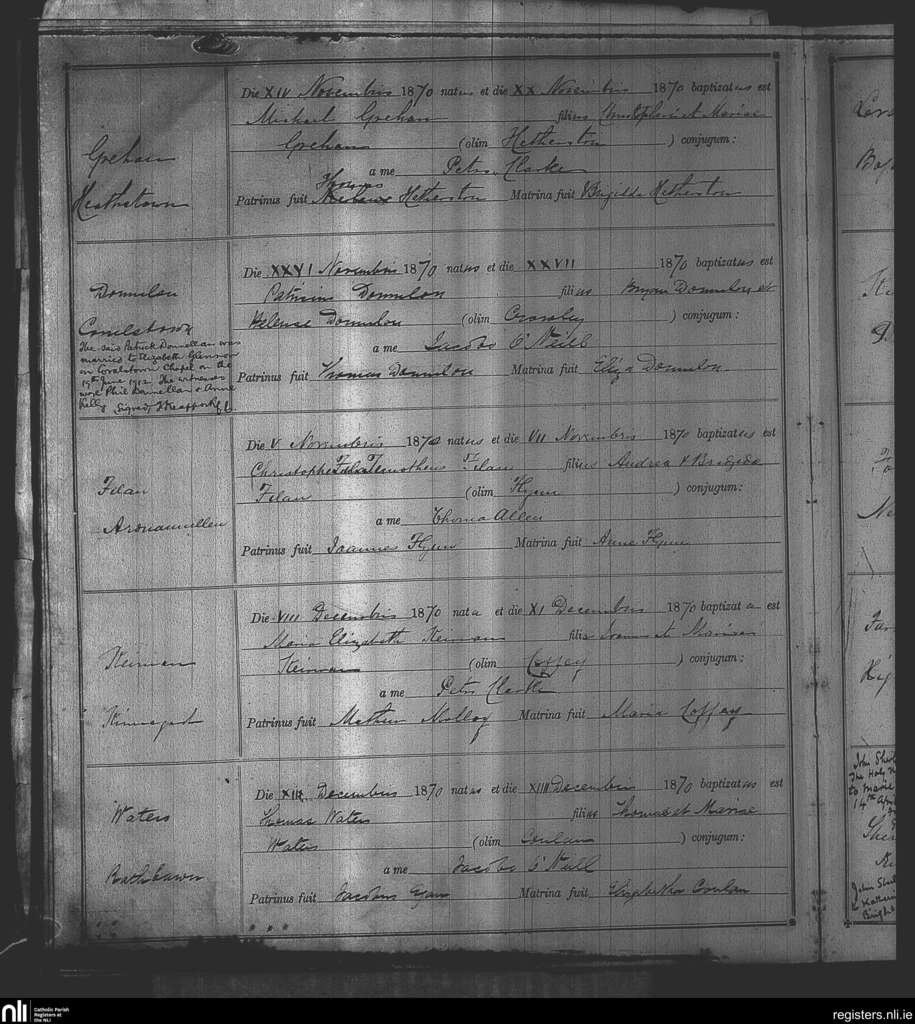 Die XIV Novembris 1870 natus et die XX Novembris 1870 baptizatus est
Michael Grehan filius Christopheri et Mariae
Grehan (olim Hetherston) conjugum:
a me Petro Clarke
Thomas
Patrinus fuit Hetherston Matrina fuit Brigidda Hetherston
Grehan
Heathstown
Die XXVI Novembris 1870 natus et die XXVII 1870 baptizatus est
Patricius Donnelon filius Bryan Donnelon et
Helenae Donnelon (olim Crowley) conjugum:
a me Jacobo O'Neill
Patrinus fuit Thomas Donnelon Matrina fuit Eliza Donnelon
Donnelon
Corralstown
The said Patrick Donnellan was
married to Elizabeth Glennon
in Coralstown Chapel on the
19th June 1912. The witnesses
were Phil Donnellan & Anne
Kelly Signed,
Die V Novembris 1870 natus et die VII Novembris 1870 baptizatus est
Christophe Timotheus Filan filius Andrea & Bridgida
Filan (olim Flynn) conjugum:
a me Thoma Allen
Patrinus fuit Joannes Flynn Matrina fuit Anne Flynn
Filan
Ardnamullen
Die VIII Decembris 1870 nata et die XI Decembris 1870 baptizata est
Maria Elizabeth Keirnan filia Joannis et Mariae
Keirnan (olim Coffey) conjugum:
a me Petro Clarke
Patrinus fuit Mathew Molloy Matrina fuit Maria Coffey
Keirnan
Kinnegad
Die XII Decembris 1870 natus et die XIII Decembris 1870 baptizatus est
Thomas Waters filius Thomas et Mariae
Waters (olim Conlan) conjugum:
a me Jacobo O'Neill
Patrinus fuit Jacobus Matrina fuit Elizabetha Conlan
Waters
John
The Holy
to Marie
14th Apr
John
Kather
Bright
nli Catholic Parish
Registers at
the NLI
registers.nli.ie